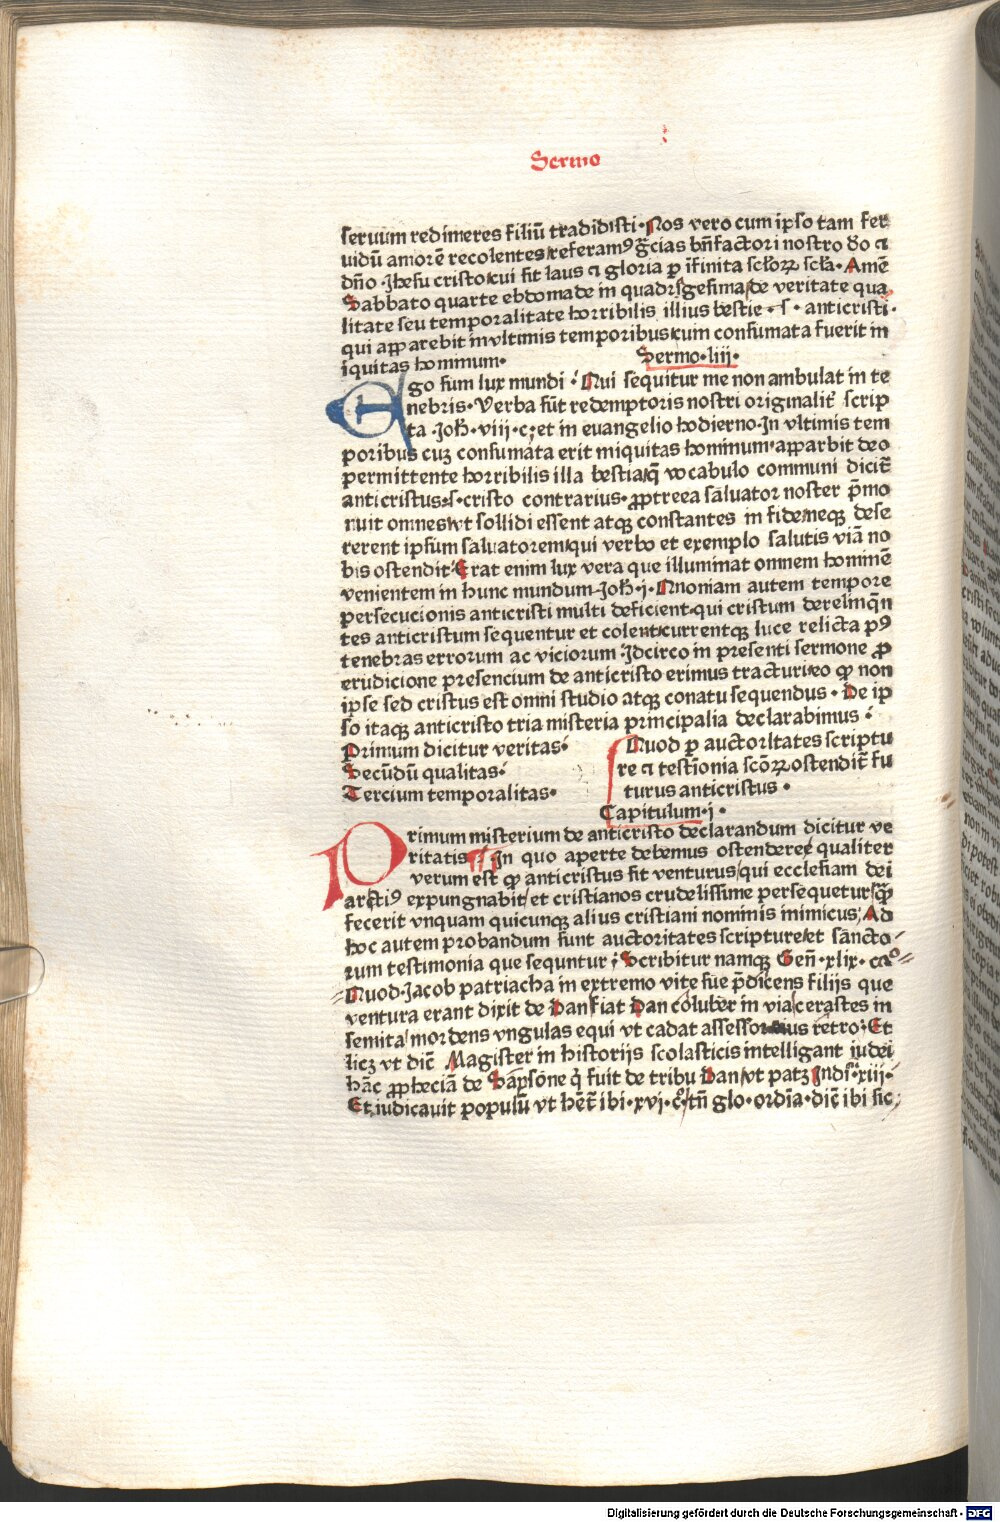 Sermo
seruum redimeres filiū tradidisti· Nos vero cum ipso tam fer
uidū amorē recolentes/referamꝰ gr̄cias bn̄factori nostro deo ⁊
dn̄o ·Ihesu cristo/cui sit laus ⁊ gloria p īfinita sclorꝝ scla· Amē
Sabbato quarte ebdomade in quadrīgesima/de veritate qua
litate seu temporalitate horribilis illius bestie · s · anticristi·
qui apparebit in vltimis temporibus/cum consumata fuerit in
iquitas hominum·
Sermo·liij·
Ego sum lux mundi : Qui sequitur me non ambulat in te
nebris· Verba sūt redemptoris nostri originalit̄ scrip
ta ·Joh̄·viij·c; et in euangelio hodierno· In vltimis tem
poribus cuꝫ consumata erit iniquitas hominum· apparbit deo
permittente horribilis illa bestia/q̄ vocabulo communi dicit̄
anticristus·s·cristo contrarius· ꝓptreea saluator noster p̄mo
nuit omnes/vt sollidi essent atqꝫ constantes in fide/neqꝫ dese
rerent ipsum saluatorem/qui verbo et exemplo salutis viā no
bis ostendit· Erat enim lux vera que illuminat omnem hominē
venientem in hunc mundum·Joh̄·j· Quoniam autem tempore
persecucionis anticristi multi deficient·qui cristum derelinqūn
tes anticristum sequentur et colent/currentqꝫ luce relicta pꝰ
tenebras errorum ac viciorum· Idcirco in presenti sermone ꝓ
erudicione presencium de anticristo erimus tracturi/eo ꝙ non
ipse sed cristus est omni studio atqꝫ conatu sequendus · De ip
so itaqꝫ anticristo tria misteria principalia declarabimus :
Primum dicitur veritas·
Secūdū qualitas:
Tercium temporalitas·
Quod p auctoritates scriptu
re ⁊ testīonia scōꝝ ostendit̄ fu
turus anticristus ·
Capitulum·j·
Primum misterium de anticristo declarandum dicitur ve
ritatis : In quo aperte debemus ostendere/ qualiter
verum est ꝙ anticristus sit venturus/qui ecclesiam dei
acrctiꝰ expungnabit/et cristianos crudelissime persequetur/q̄
fecerit vnquam quicunqꝫ alius cristiani nominis inimicus; Ad
hoc autem probandum sunt auctoritates scripture/et sancto
rum testimonia que sequntur ; Scribitur namqꝫ Gen̄·xlix· ca°
Quod·Jacob patriacha in extremo vite sue p̄dicens filijs que
ventura erant dixit de Dan fiat Dan coluber in via/cerastes in
semita/mordens vngulas equi vt cadat assessor eius retro: Et
licꝫ vt dic̄ Magister in historijs scolasticis intelligant iudei
hāc ꝓpheciā de Sampsone q̄ fuit de tribu Dan/vt patꝫ Iudī·xiij·
Et iudicauit populū vt hēt̄ ibi·xvj·c°/tn̄ glo·ordīa·dic̄ ibi sic
Digitalisierung gefördert durch die Deutsche Forschungsgemeinschaft · DFG